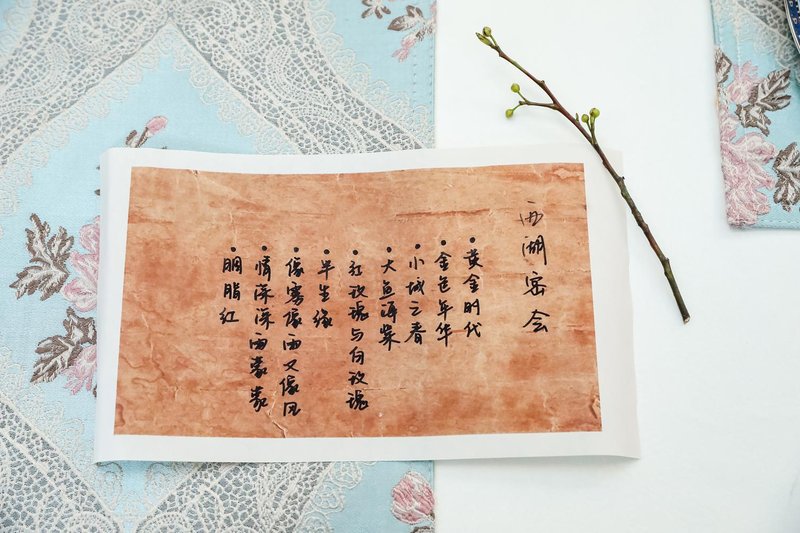 西湖密会
•黄金时代
•金色年华
•小城之春
•大鱼海棠
•红玫瑰与白玫瑰
•半生缘
•像雾像雨又像风
•情深深雨蒙蒙
•胭脂红